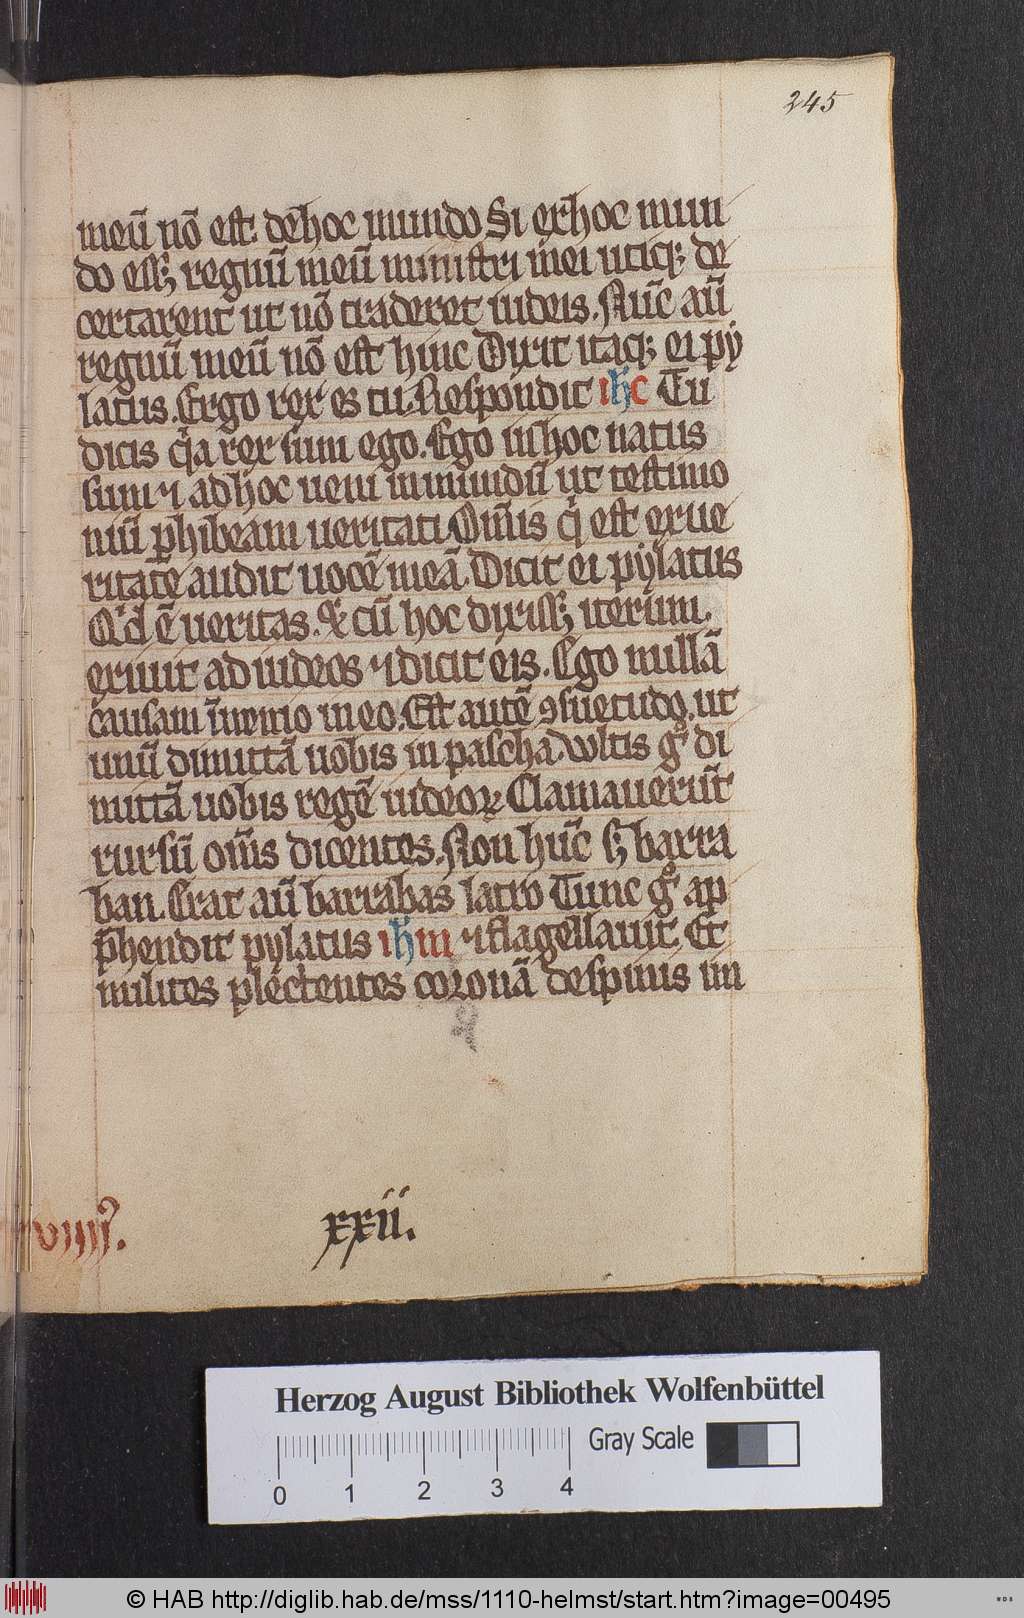 245
meū nō est. de hoc mundo Si ex hoc mun
do ess; regnū meū ministri mei utiq; de
certarent ut nō traderer iudeis. Nūc aū
regnū meū nō est hinc Dixit itaq; ei py
latus. Ergo rex es tu. Respondit ihc Tu
dicis q̄a rex sum ego. Ego in hoc natus
sum ⁊ ad hoc ueni in mundū ut testimo
niū p̱hibeam ueritati Om̄is q̄ est ex ue
ritate audit uocē meā. Dicit ei pylatus
Qͥd ē ueritas. Et cū hoc dixiss; iterum.
exiuit ad iudeos ⁊ dicit eis. Ego nullā
causam inuenio in eo. Est autē ꝯsuetudo. ut
unū dimittā uobis in pascha. Voltis gͦ di
mittā uobis regē iudeoꝝ Clamauerūt
rursū om̄s dicentes. Non hūc sꝫ barra
ban. Erat aū barrabas latro Tunc gͦ ap
p̄hendit pylatus ihm ⁊ flagellauit. Et
milites plectentes coronā de spinis im
viiii.
xxii.
Herzog August Bibliothek Wolfenbüttel
Gray Scale
0 1 2 3 4
© HAB http://diglib.hab.de/mss/1110-helmst/start.htm?image=00495